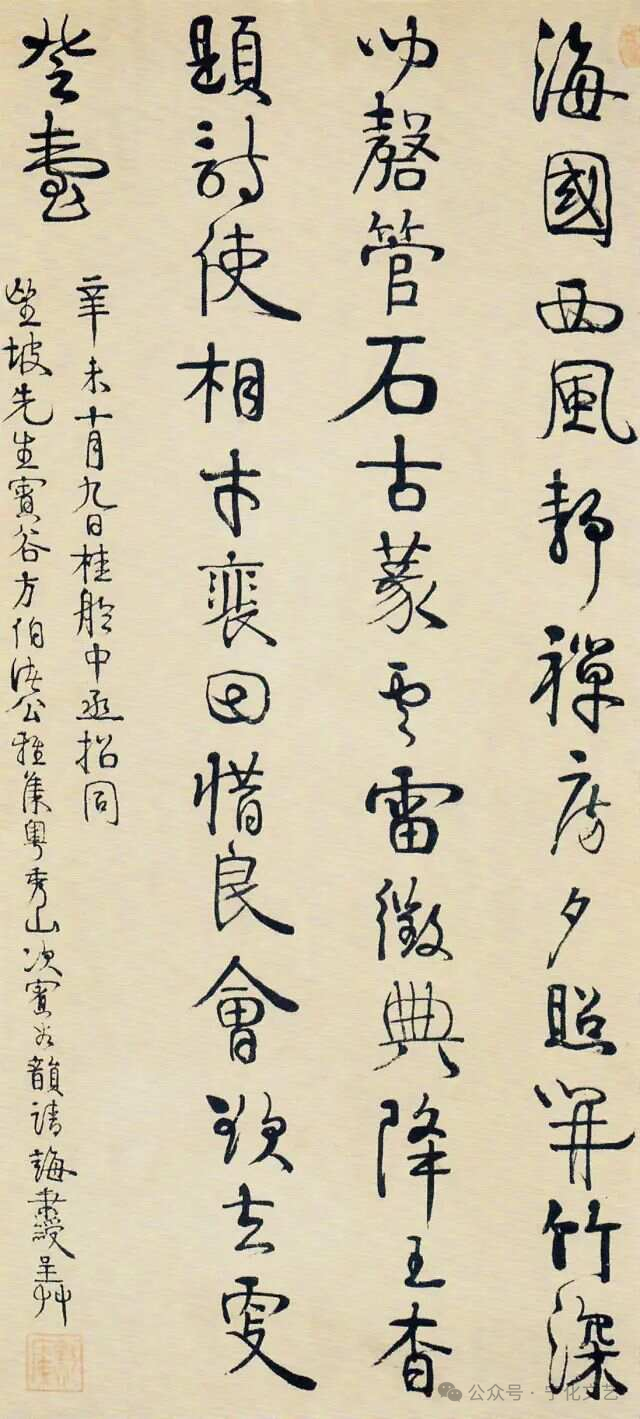 海國西風靜禪房夕照開竹深
磬管石古篆雲雷徵典降王杳
題詩使相才裴回惜良會欲去更
登臺
辛未十月九日桂舲中丞招同
望坡先生賓谷方伯諸公雅集粵秀山次賓谷韻請誨秉綬呈艸
公众号·宁化文艺